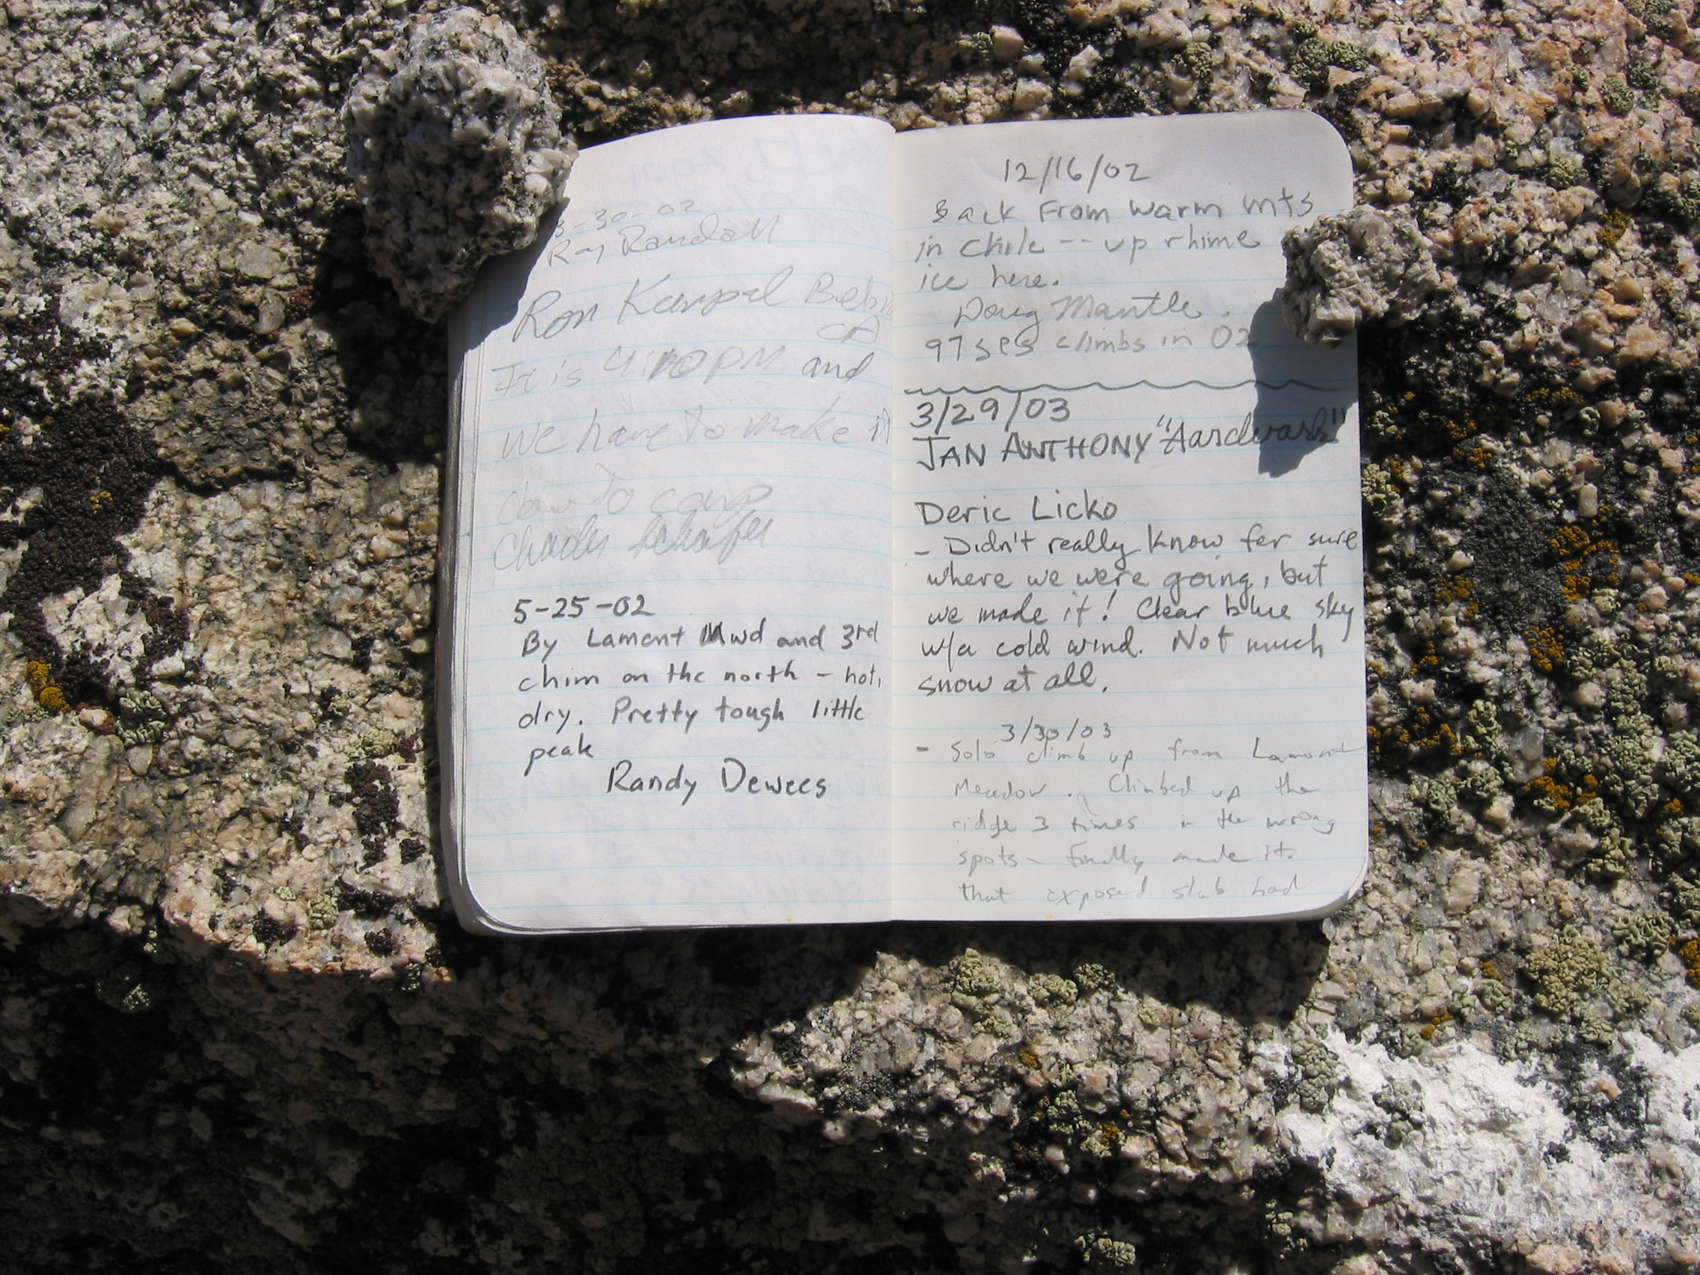 3-30-02
Ray Randall
Ron Karpel
CA
It is 4:10 PM and
we have to make it
down to camp
Charles Schafer
5-25-02
By Lamont Mwd and 3rd
chim on the north - hot,
dry. Pretty tough little
peak
Randy Dewees
12/16/02
Back From Warm mts
in Chile -- up rhime
ice here.
Doug Mantle.
97 SPS climbs in 02
3/29/03
JAN ANTHONY "Aardvark"
Deric Licko
- Didn't really know fer sure
where we were going, but
we made it! Clear blue sky
w/a cold wind. Not much
snow at all.
3/30/03
- Solo climb up from Lamont
Meadow. Climbed up the
ridge 3 times in the wrong
spots - Finally made it.
that exposed slab had